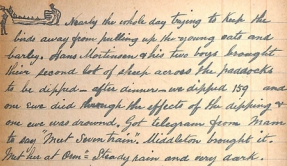 Nearly the whole day trying to keep the
birds away from pulling up the young oats and
barley. Hans Mortinsen & his two boys brought
their second lot of sheep across the paddocks
to be dipped — after dinner — we dipped 159 and
one ewe died through the effects of the dipping &
one ewe was drowned. Got telegram from Mam
to say "Meet Seven train". Middleton brought it.
Met her at — Steady rain and very dark